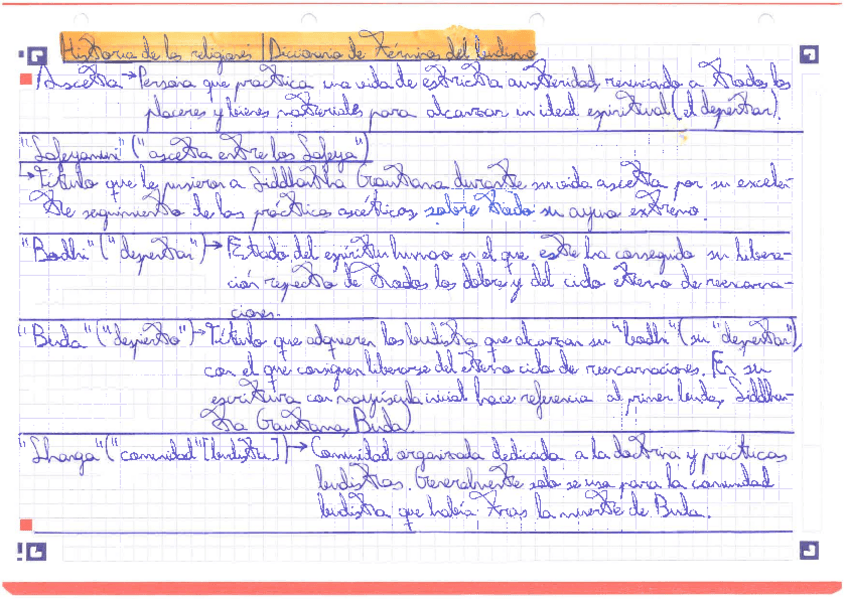 Historia de las religiones | Diccionario de términos del budismo
Asceta → Persona que practica una vida de estricta austeridad, renunciando a todos los
placeres y bienes materiales para alcanzar un ideal espiritual (el despertar).
"Sakyamuni" ("asceta entre los Sakya")
→ Título que le pusieron a Siddhartha Gautama durante su vida asceta por su excelen-
te seguimiento de las prácticas ascéticas, sobre todo su ayuno extremo.
"Bodhi" ("despertar") → Estado del espíritu humano en el que este ha conseguido su libera-
ción respecto de todos los dolores y del ciclo eterno de reencarna-
ciones.
"Buda" ("despierto") → Título que adquieren los budistas que alcanzan su "bodhi" (su "despertar"),
con el que consiguen liberarse del eterno ciclo de reencarnaciones. En su
escritura con mayúscula inicial hace referencia al primer buda, Siddhar-
tha Gautama, Buda).
"Shanga" ("comunidad [budista]) → Comunidad organizada dedicada a la doctrina y prácticas
budistas. Generalmente solo se usa para la comunidad
budista que había tras la muerte de Buda.